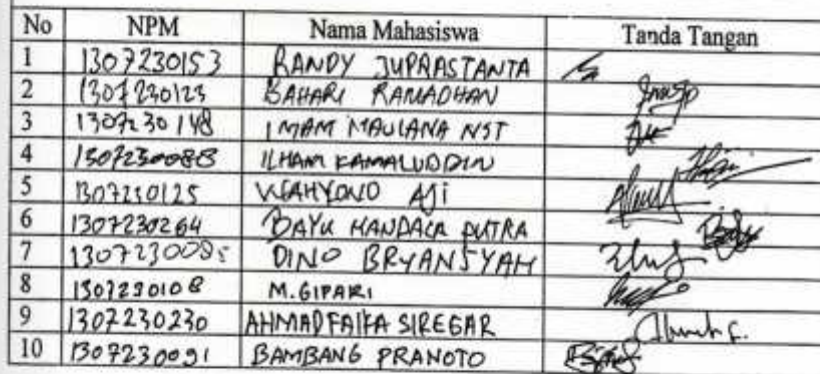 No NPM Nama Mahasiswa Tanda Tangan
1 1307230153 RANDY JUPRASTANTA
2 1307230123 BAHARI RAMADHAN
3 1307230148 IMAM MAULANA NST
4 1307230088 ILHAM KAMALUDDIN
5 1307230125 WAHYONO AJI
6 1307230264 BAYU HANDACA PUTRA
7 1307230085 DINO BRYANSYAH
8 1307230108 M. GIPARI
9 1307230230 AHMAD FAIKA SIREGAR
10 1307230091 BAMBANG PRANOTO